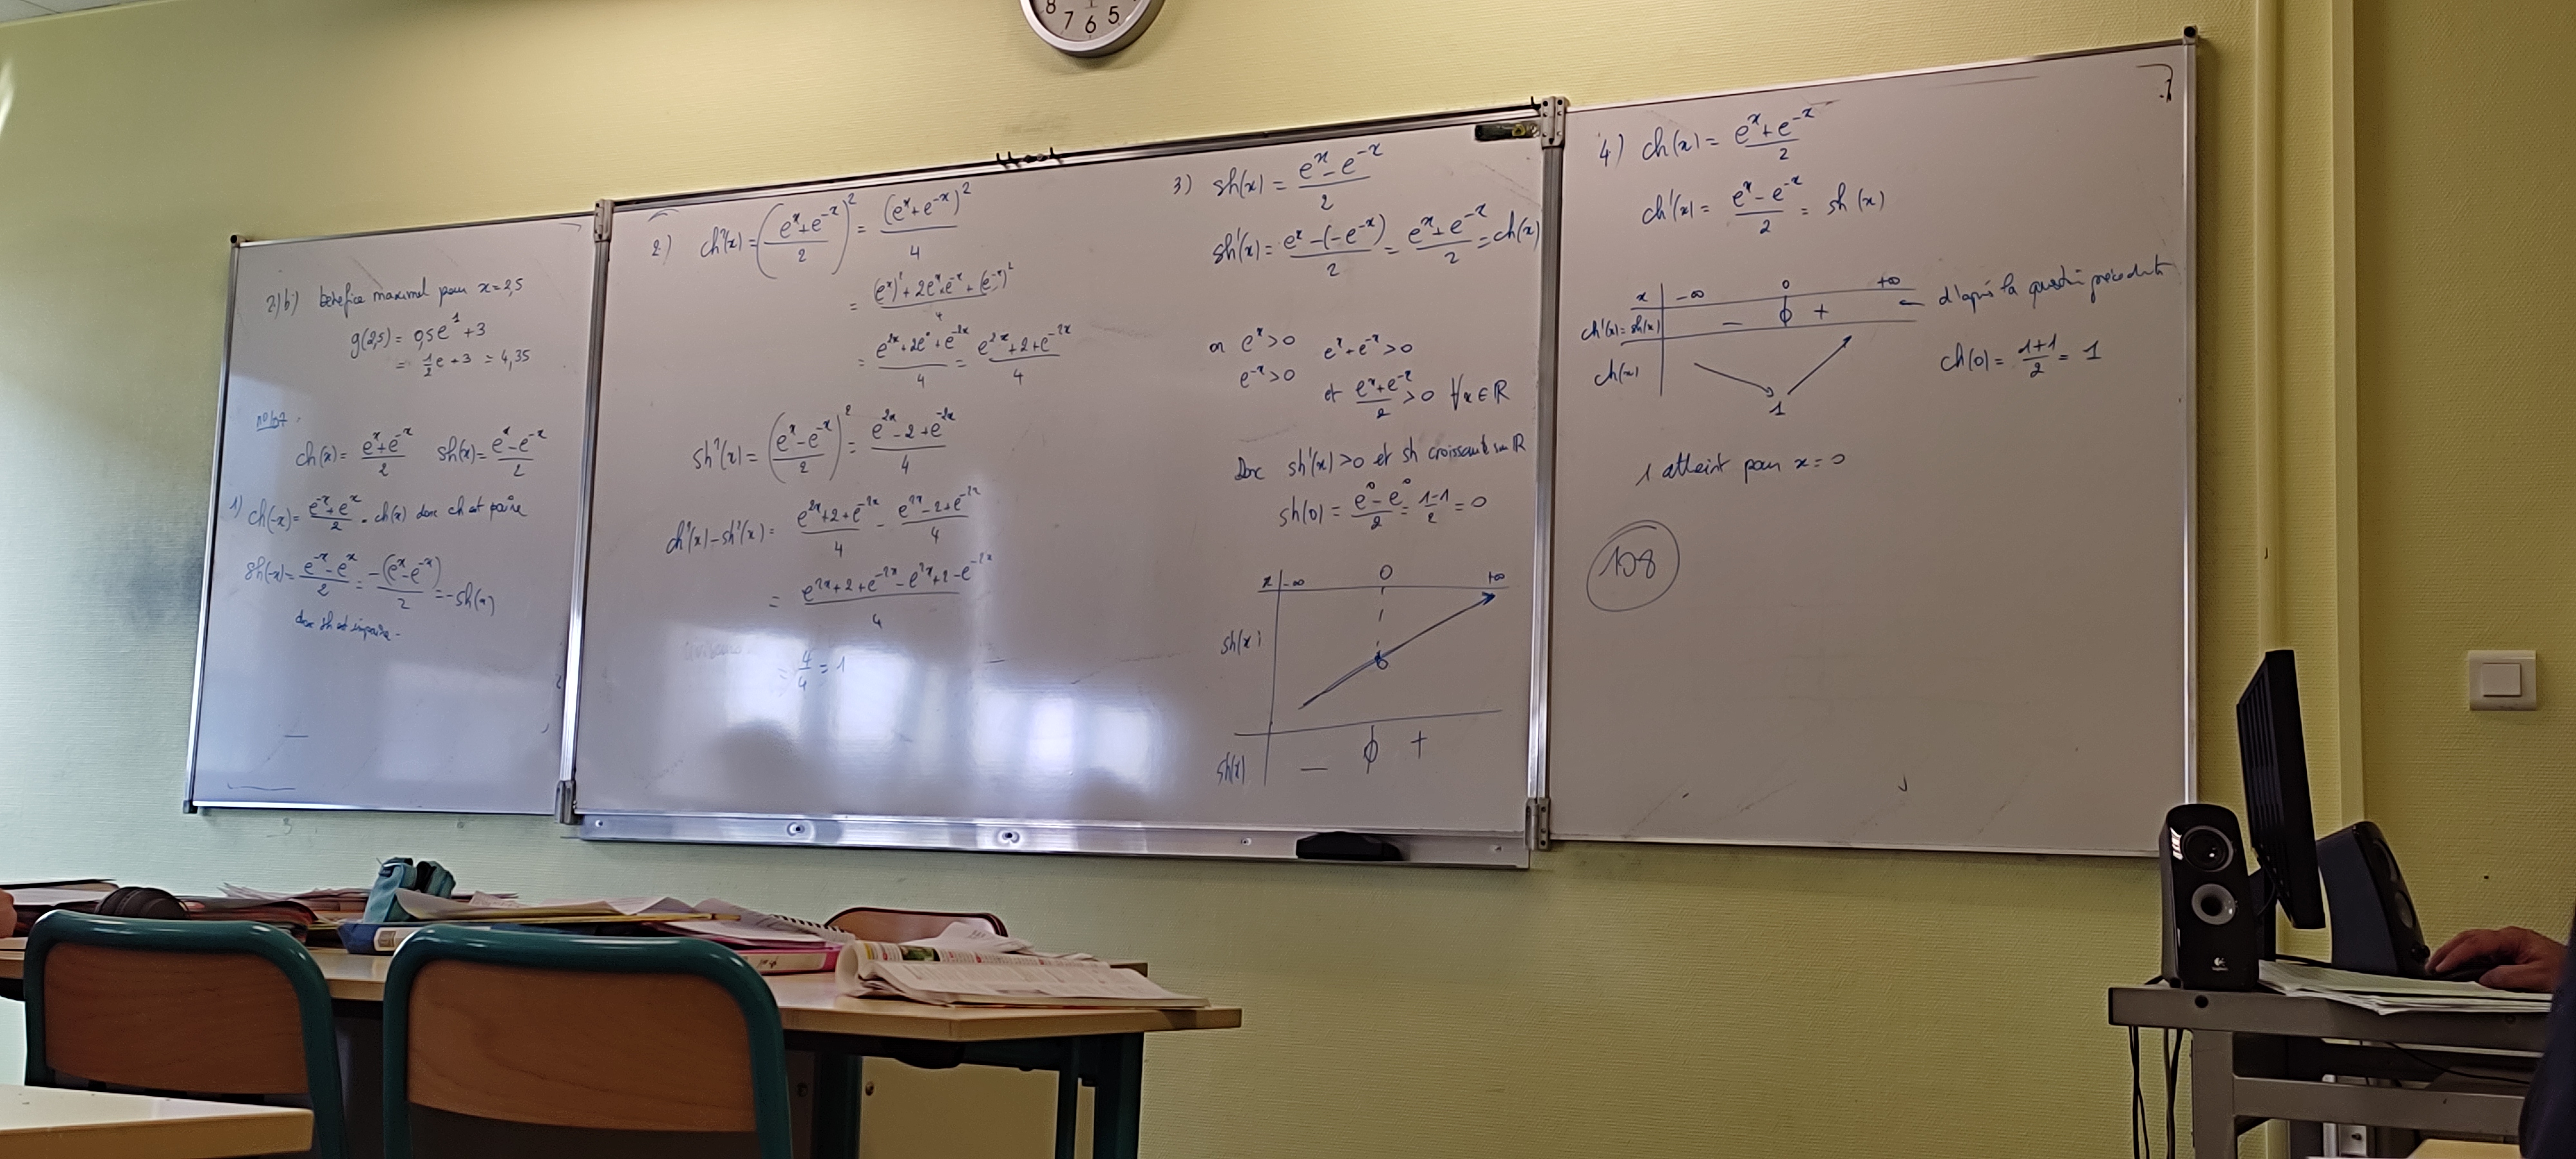 8 7 6 5
2)b) bénéfice maximal pour x=2,5
g(2,5) = 0,5e^1 + 3
= 1/2 e + 3 = 4,35
n°107
ch(x) = (e^x + e^-x)/2 sh(x) = (e^x - e^-x)/2
1) ch(-x) = (e^-x + e^x)/2 = ch(x) donc ch est paire
sh(-x) = (e^-x - e^x)/2 = -(e^x - e^-x)/2 = -sh(x)
donc sh est impaire
2) ch²(x) = ((e^x + e^-x)/2)² = (e^x + e^-x)²/4
= ((e^x)² + 2e^x × e^-x + (e^-x)²)/4
= (e^2x + 2e^0 + e^-2x)/4 = (e^2x + 2 + e^-2x)/4
sh²(x) = ((e^x - e^-x)/2)² = (e^2x - 2 + e^-2x)/4
ch²(x) - sh²(x) = (e^2x + 2 + e^-2x)/4 - (e^2x - 2 + e^-2x)/4
= (e^2x + 2 + e^-2x - e^2x + 2 - e^-2x)/4
= 4/4 = 1
3) sh(x) = (e^x - e^-x)/2
sh'(x) = (e^x - (-e^-x))/2 = (e^x + e^-x)/2 = ch(x)
or e^x > 0 e^x + e^-x > 0
e^-x > 0
et (e^x + e^-x)/2 > 0 ∀x∈ℝ
Donc sh'(x) > 0 et sh croissante sur ℝ
sh(0) = (e^0 - e^0)/2 = (1-1)/2 = 0
x -∞ 0 +∞
sh(x) 0
sh(x) - 0 +
4) ch(x) = (e^x + e^-x)/2
ch'(x) = (e^x - e^-x)/2 = sh(x)
x -∞ 0 +∞
ch'(x) = sh(x) - 0 + ← d'après la question précédente
ch(x) 1
ch(0) = (1+1)/2 = 1
1 atteint pour x = 0
108